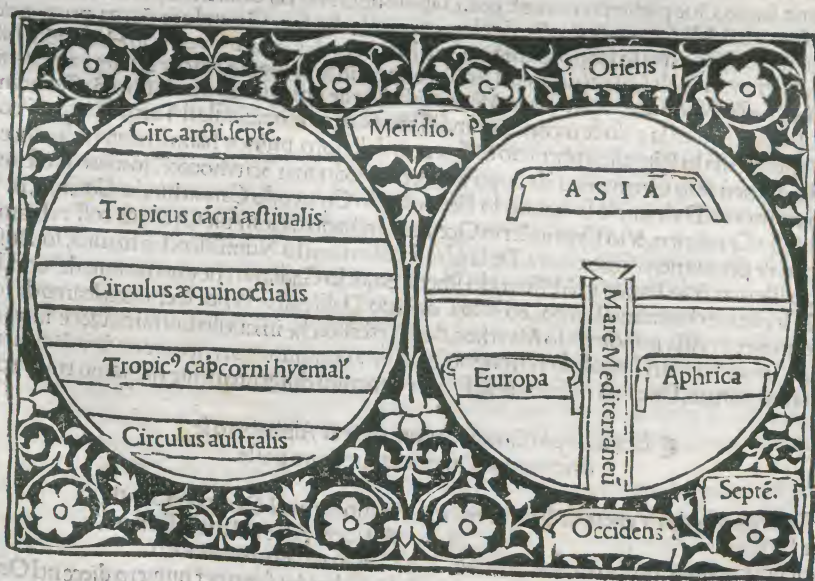 Circ.arcti.septē.
Tropicus cācri æstiualis
Circulus æquinoctialis
Tropicꝰ cap̄corni hyemal̓.
Circulus australis
Meridio.
Oriens
ASIA
Mare Mediterraneū
Europa
Aphrica
Septē.
Occidens